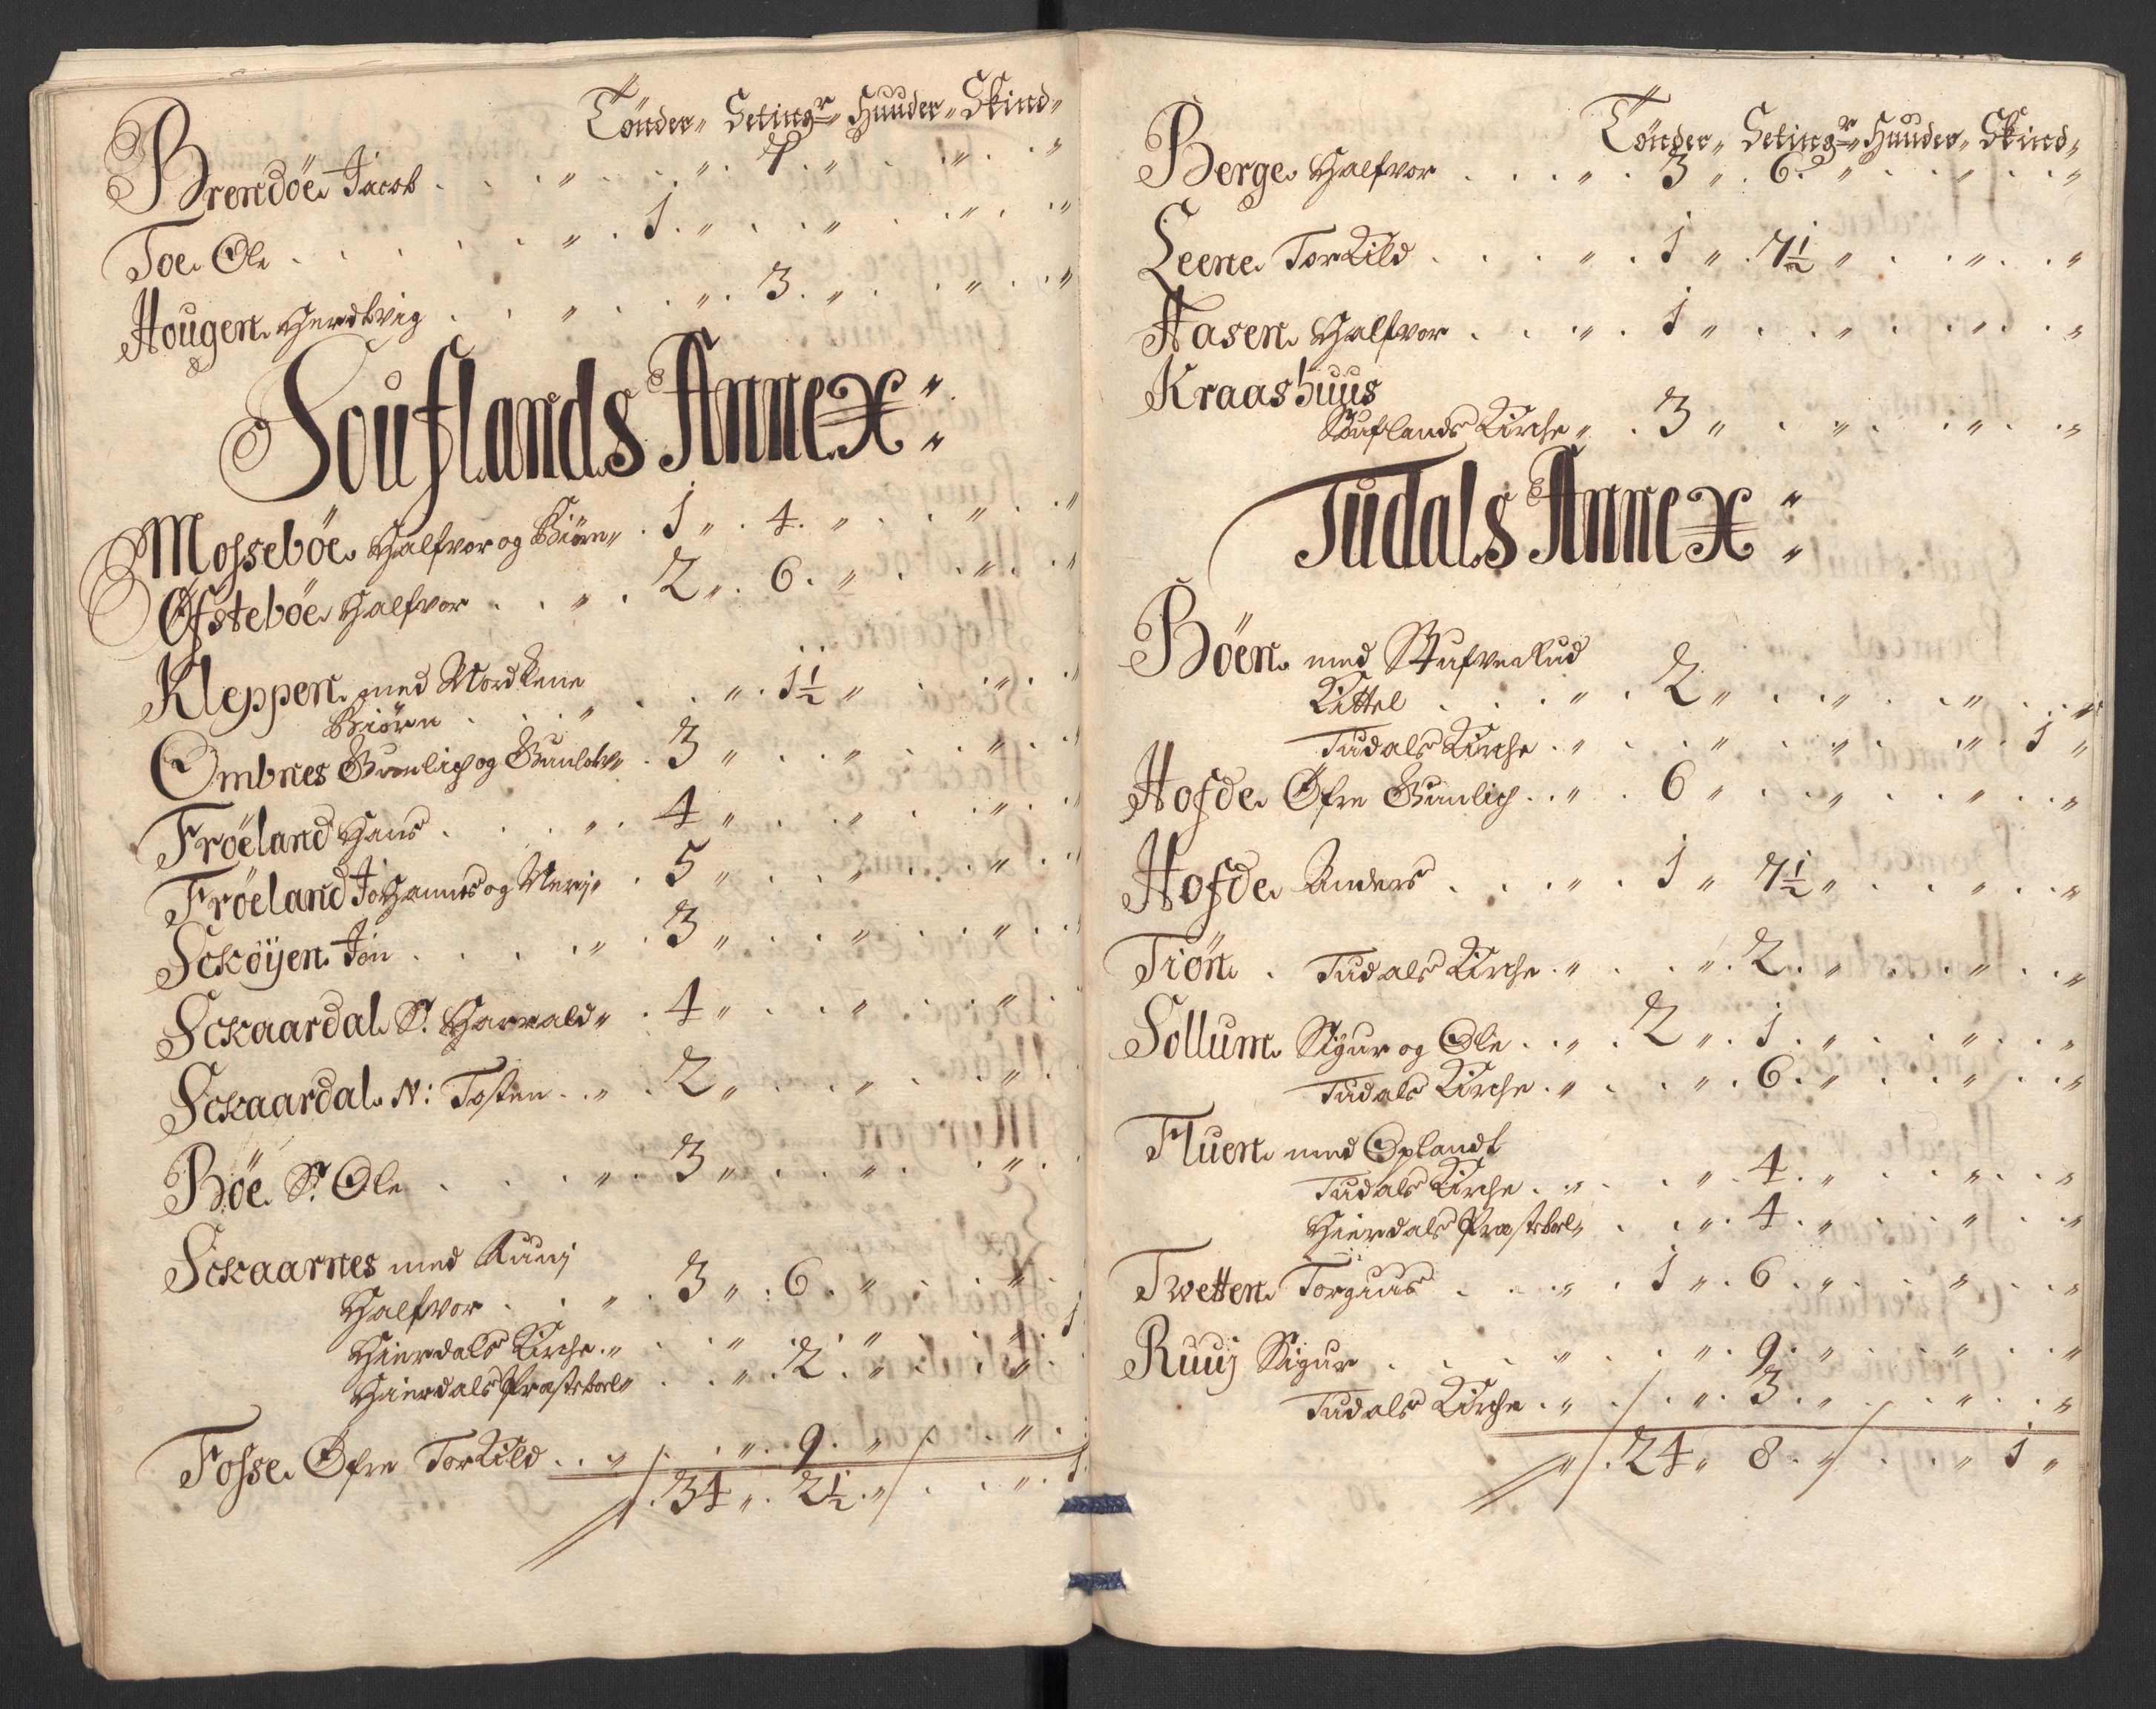 Tönder„ Seting:r„ Huuder„ Skind„
Brendöe Jacob . . . „ . . . „ . 4 . „ . . „ . . „
Toe Ole . . . . . „ . 1 . „ . . „ . . „ . . „
Hougen Herdtvig . . „ . . . „ . 3 . „ . . „ . . „
Souflands Annex:
Mosseböe Halfvor og Biörn„ . 1 „ . 4 . „ . . „ . . „
Ofsteböe Halfvor . . „ . 2 „ . 6 . „ . . „ . . „
Kleppen med Nordlene
Biörn . . . „ . . . „ . 1½ „ . . „ . .
Ombnes Gunlich og Gunleh„ . 3 „ . . „ . . „ . .
Fröeland Hans . . . „ . 4 „ . . „ . . „ . .
Fröeland Johannes og Nerij„ . 5 „ . . „ . . „ . .
Scköyen Jon . . . . „ . 3 „ . . „ . . „ . .
Sckaardal S: Harrald„ . 4 „ . . „ . . „ .
Sckaardal N: Tosten . . „ . 2 „ . . „ . . „ .
Böe S: Ole . . . „ . 3 „ . . „ . . „ .
Sckaarnes med Ruuj
Halfvor . . „ . 3 „ . 6 . „ . . „ .
Hierdals Kirche . „ . . „ . . „ . . „ . 1
Hierdals Præstebol„ . . „ . 2 . „ . . „ .
Fosse Öfre Torkild . . „ . . „ . 9 . „ . . „ .
„ . 34 „ . 2½ . „ . . „ . 1
Tönder„ Seting:r„ Huuder„ Skind„
Berge Halfvor . . . „ . 3 „ . 6 . „ . . „ . . „
Leene Torkild . . . „ . 1 „ . 7½ „ . . „ . . „
Aasen Halfvor . . . „ . 1 „ . . „ . . „ . . „
Kraashuus
Souflands Kirche „ . 3 „ . . „ . . „ . . „
Tudals Annex:
Böen med Stufverud
Kittel . . . „ . 2 „ . . „ . . „ . . „
Tudals Kirche . „ . . „ . . „ . . „ . 1 „
Hofde Öfre Gunlich . . „ . 6 „ . . „ . . „ . . „
Hofde Anders . . . „ . 1 „ 7½ „ . . „ . . „
Tiön . Tudals Kirche . „ . . „ . 2 . „ . . „ . . „
Sollum Sigur og Ole . . „ . 2 „ . 1 . „ . . „ . . „
Tudals Kirche . „ . . „ . 6 . „ . . „ . . „
Fluen med Oplandt
Tudals Kirche . „ . . „ . 4 . „ . . „ . . „
Hierdals Præstebol„ . . „ . 4 . „ . . „ . . „
Twetten Torguus . . . „ . 1 „ . 6 . „ . . „ . . „
Ruuj Sigur . . . „ . . „ . 9 . „ . . „ . . „
Tudals Kirche . „ . . „ . 3 . „ . . „ . . „
„ . 24 „ 8 . „ . . „ 1 „